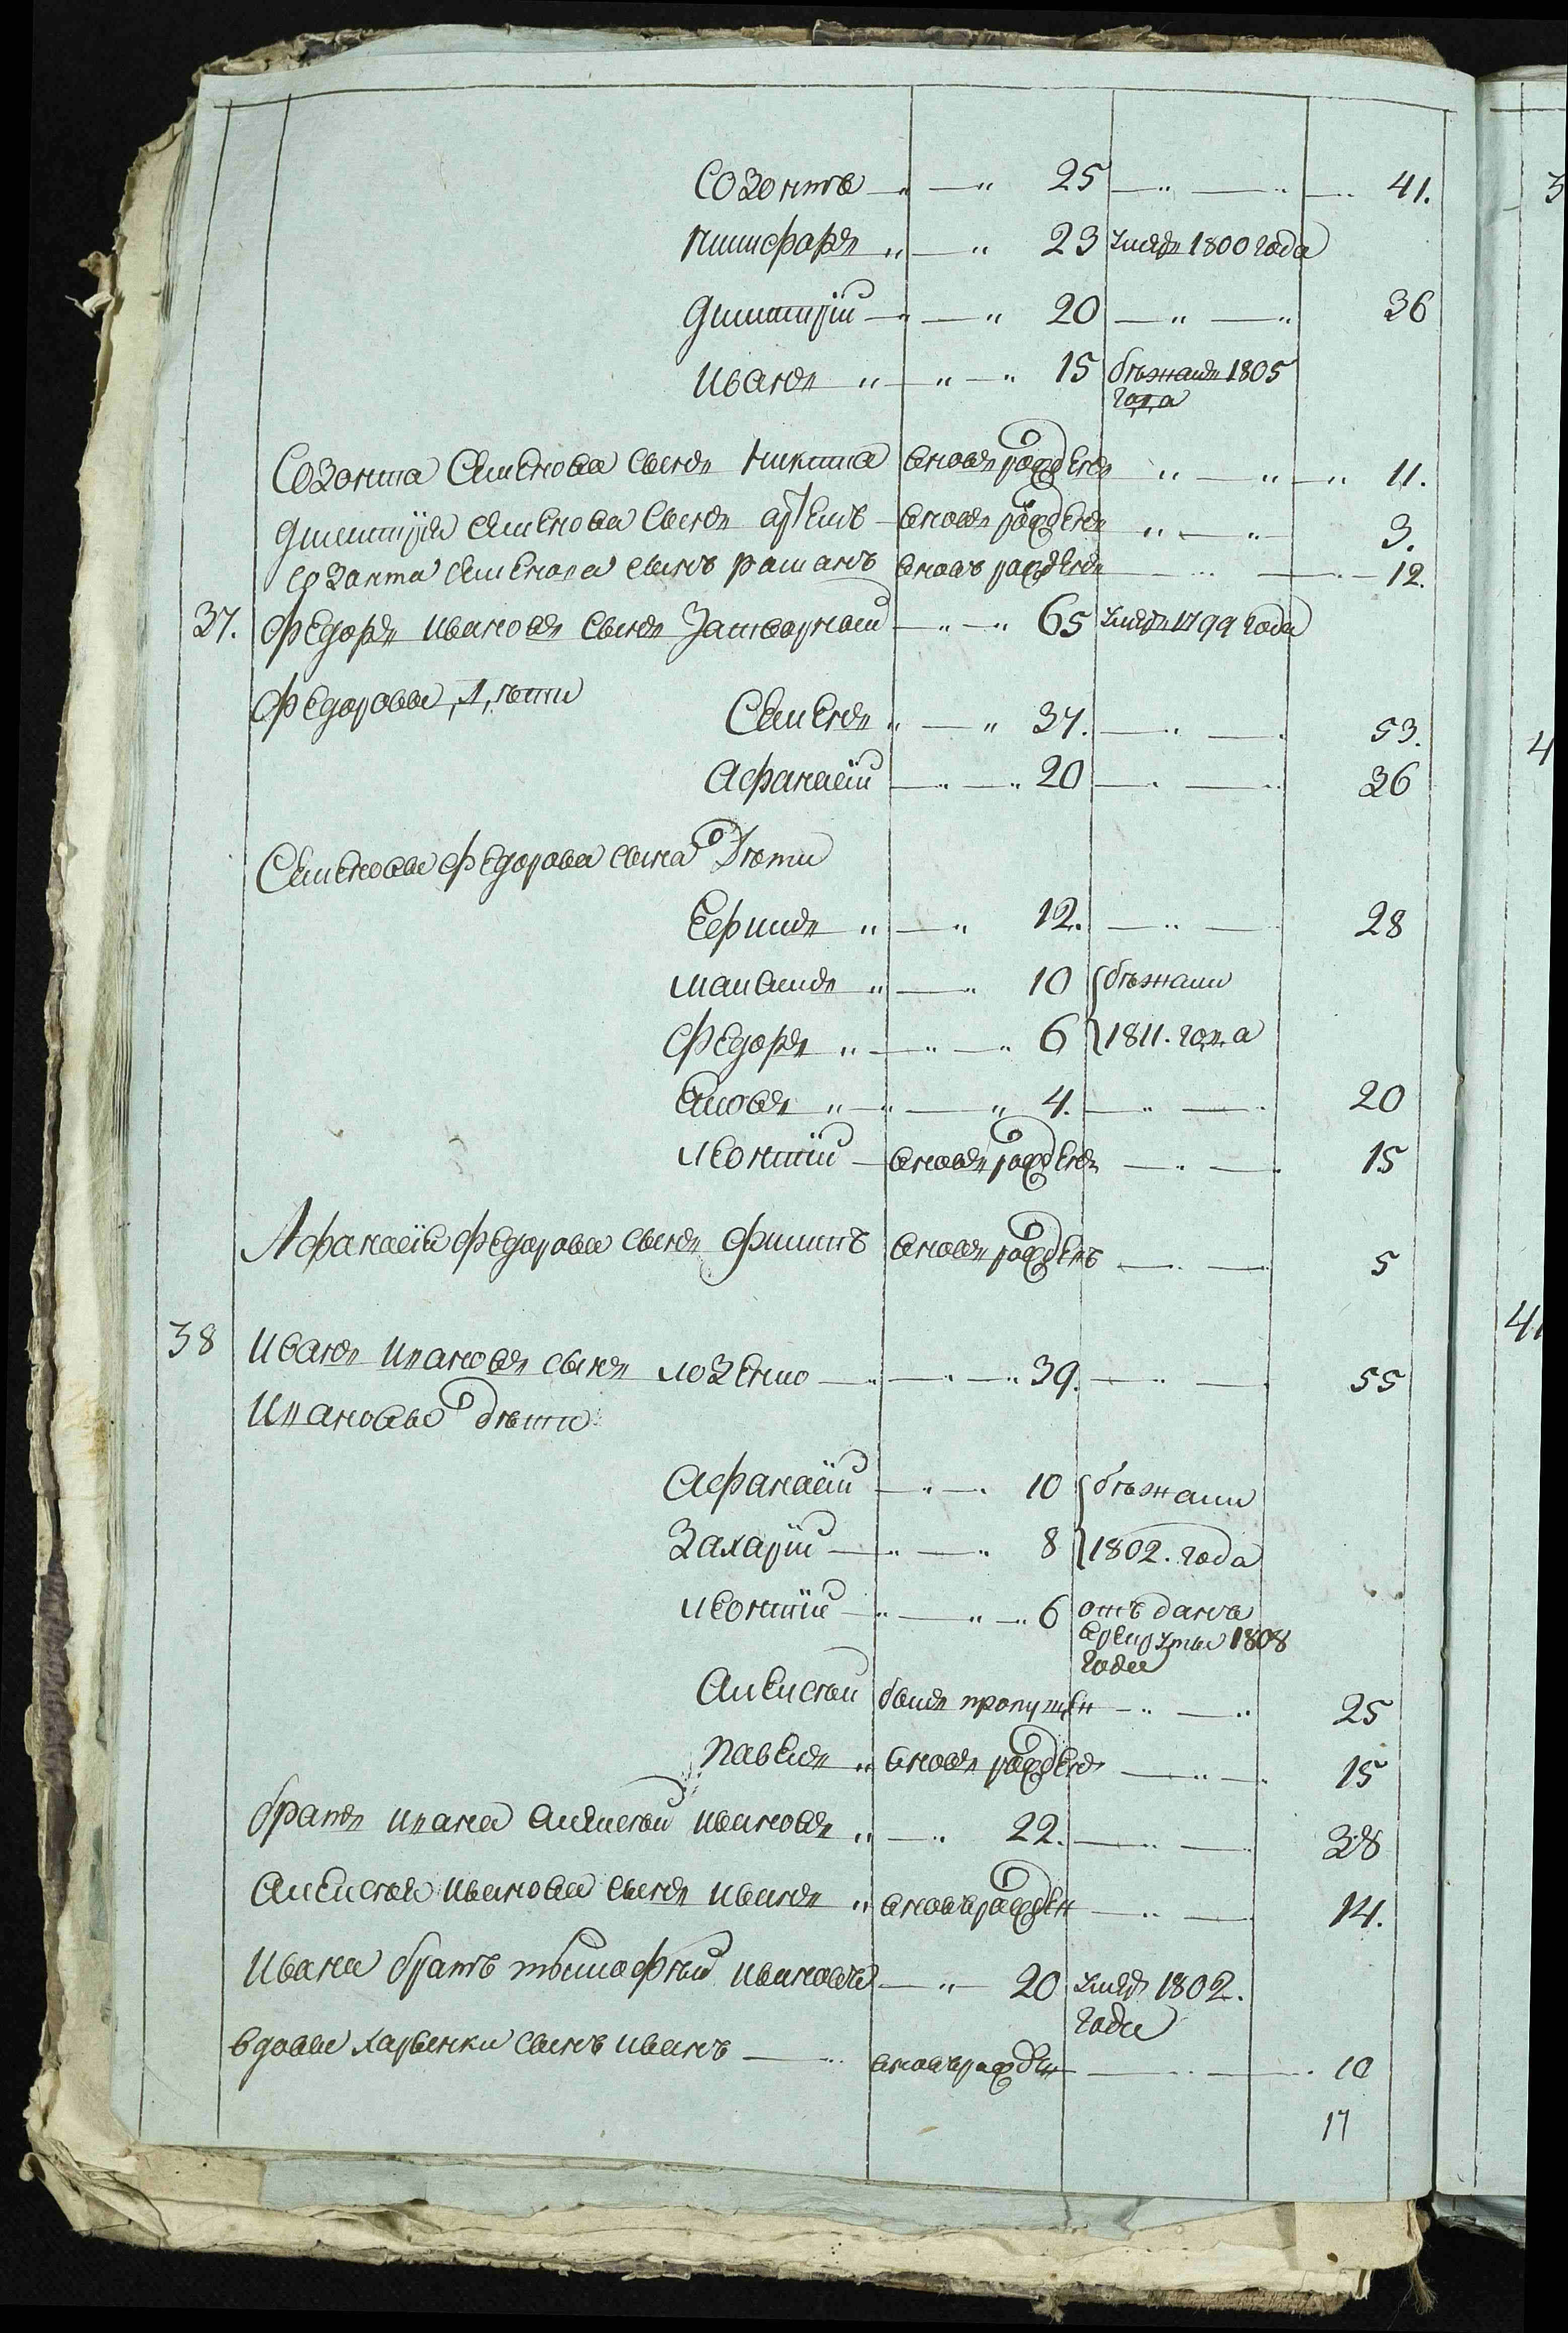 Созонтъ 25 41.
Никифоръ 23 умеръ 1800 года
Дмитрій 20 36
Иванъ 15 бѣжалъ 1805
года
Созонта Семенова сынъ Никита вновь рожденъ 11.
Дмитрія Семенова сынъ Артемъ вновь рожденъ 3.
Созонта Семенова сынъ Романъ вновь рожденъ 12.
37. Федоръ Ивановъ сынъ 65 умеръ 1799 года
Федоровы дѣти
Семенъ 37. 53.
Афанасій 20 36
Семеновы Федорова сына дѣти
Ефимъ 12. 28
10 бѣжали
Федоръ 6 1811. года
4. 20
Леонтій вновь рожденъ 15
Афанасія Федорова сынъ Филипъ вновь рожденъ 5
38 Иванъ Ивановъ сынъ Лозенко 39. 55
Ивановы дѣти
Афанасій 10 бѣжали
Захарій 8 1802. года
Леонтій 6 отъ данъ
врекруты 1808
года
Алексѣй былъ пропущен 25
Павелъ вновь рожденъ 15
братъ Ивана Алексѣй Ивановъ 22. 38
Алексѣя Иванова сынъ Иванъ вновь рожден 14.
Ивана братъ Тимофѣй Ивановъ 20 умеръ 1802.
года
вдовы сынъ Иванъ вновь рожден 10
17